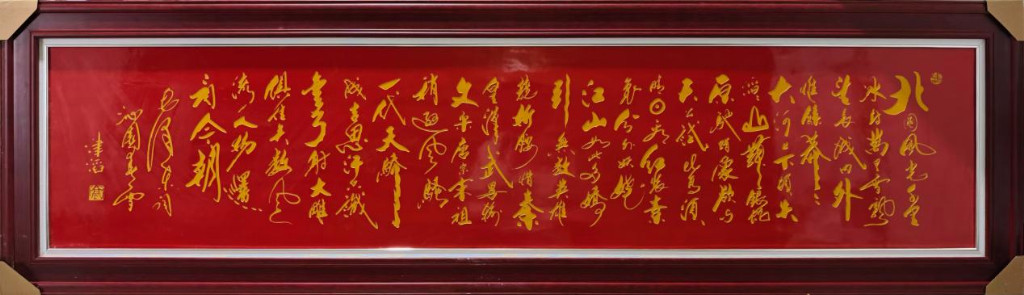 北国风光千里
冰封万里雪飘
望长城内外
惟余莽莽
大河上下顿失
滔滔山舞银蛇
原驰蜡象欲与
天公试比高须
晴日看红装素
裹分外妖娆
江山如此多娇
引无数英雄
竞折腰惜秦
皇汉武略输
文采唐宗宋祖
稍逊风骚
一代天骄
成吉思汗只识
弯弓射大雕
俱往矣数风
流人物还
看今朝
毛泽东词
沁园春雪